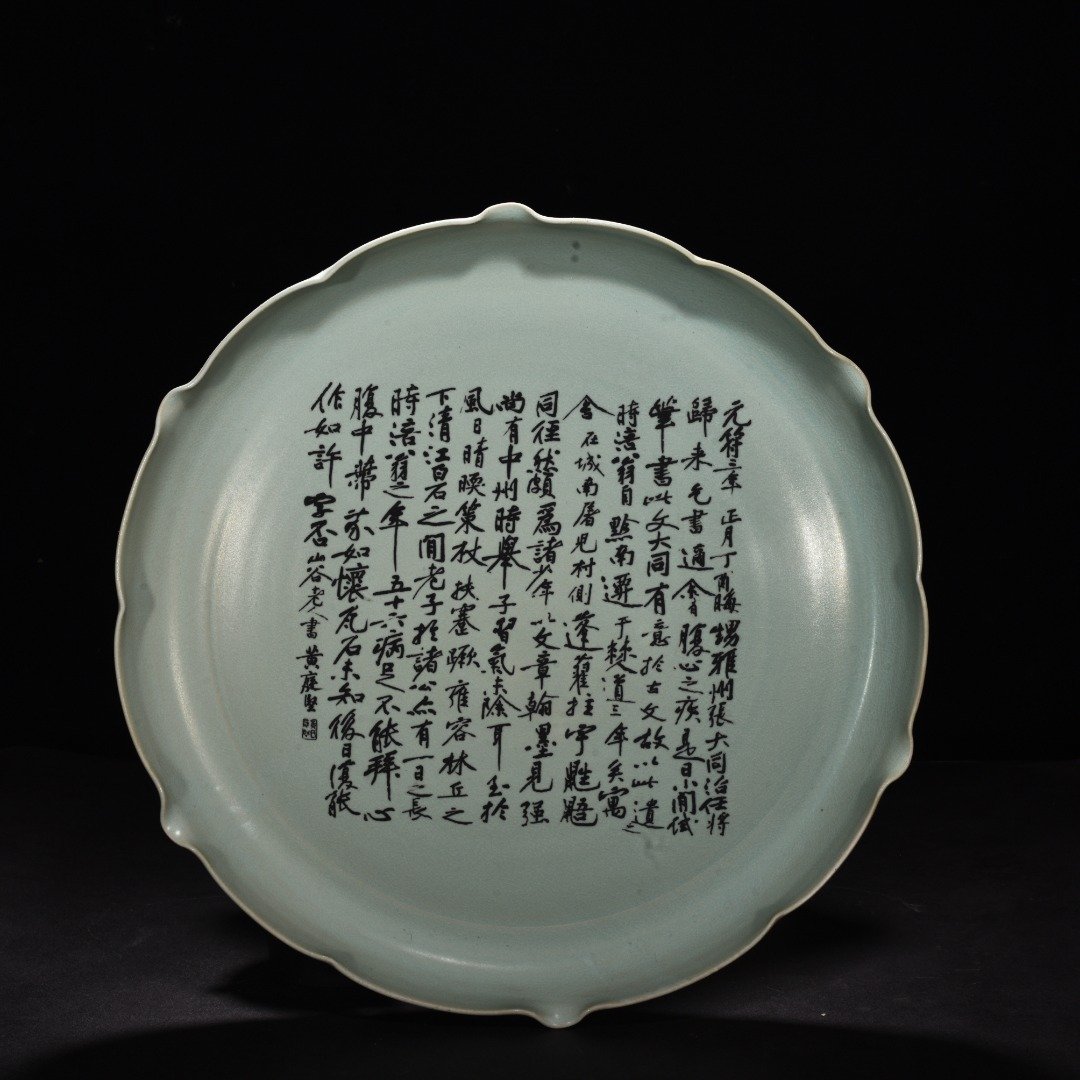 元符三年正月丁酉晦甥雅州張大同治任將
歸来乞書適余有腹心之疾是日小閒試
筆書此文大同有意於古文故以此遺之
時涪翁自黔南遷于僰道三年矣寓
舍在城南屠兒村側蓬藋拄宇鼪鼯
同徑然頗爲諸少年以文章翰墨見强
尚有中州時舉子習氣未除耳至於
風日晴暖策杖扶蹇蹶雍容林丘之
下清江白石之間老子於諸公亦有一日之長
時涪翁之年五十六病足不能拜心
腹中蔕芥如懷瓦石未知後日復能
作如許字否山谷老人書黄庭堅